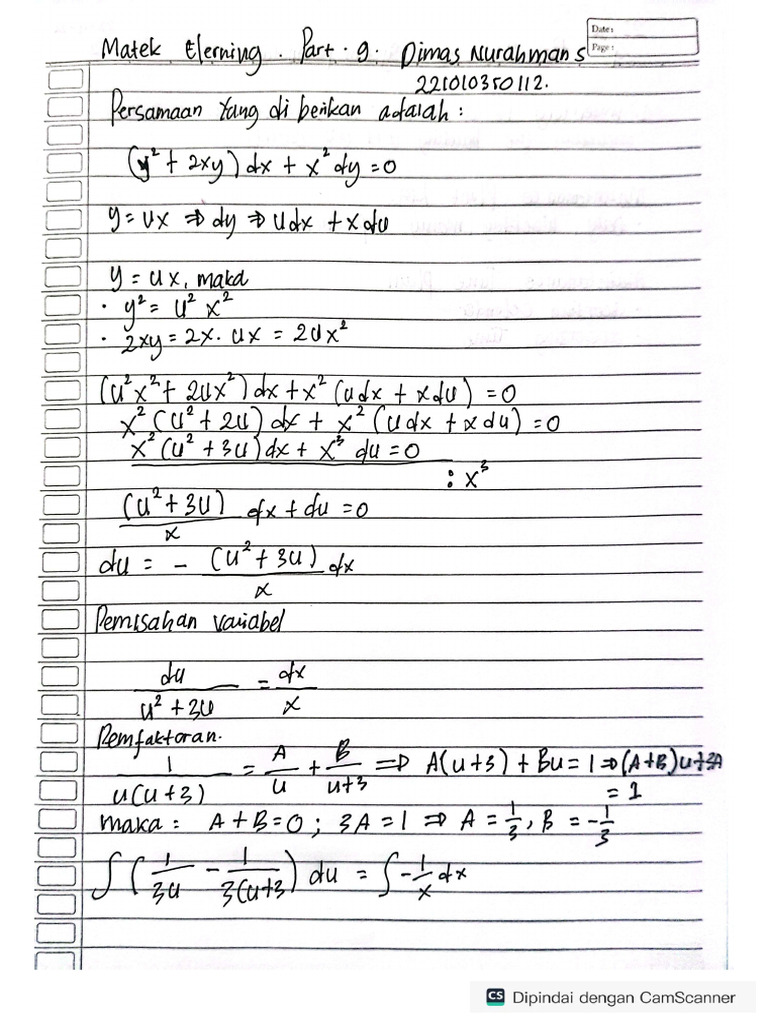 Date:
Page:
Matek Elerning. Part. 9. Dimas Nurahman S
221010350112.
Persamaan Yang di berikan adalah:
(y² + 2xy) dx + x² dy = 0
y = ux ⇒ dy ⇒ u dx + x du
y = ux, maka
· y² = u² x²
· 2xy = 2x. ux = 2ux²
(u²x² + 2ux²) dx + x² (u dx + x du) = 0
x² (u² + 2u) dx + x² (u dx + x du) = 0
x² (u² + 3u) dx + x³ du = 0
: x³
(u² + 3u)/x dx + du = 0
du = - (u² + 3u)/x dx
Pemisahan variabel
du/(u² + 3u) = dx/x
Pemfaktoran.
1/(u(u+3)) = A/u + B/(u+3) ⇒ A(u+3) + Bu = 1 ⇒ (A+B)u+3A
= 1
maka: A + B = 0 ; 3A = 1 ⇒ A = 1/3, B = -1/3
∫ (1/3u - 1/3(u+3) du = ∫ -1/x dx
CS Dipindai dengan CamScanner